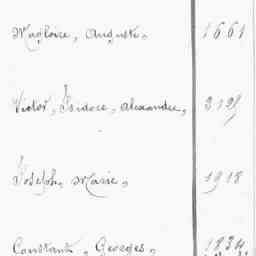 Magloire, Auguste, 1661
Victor, Isidore, Alexandre,
Joseph, Marie, 1918
Constant, Georges, 1834